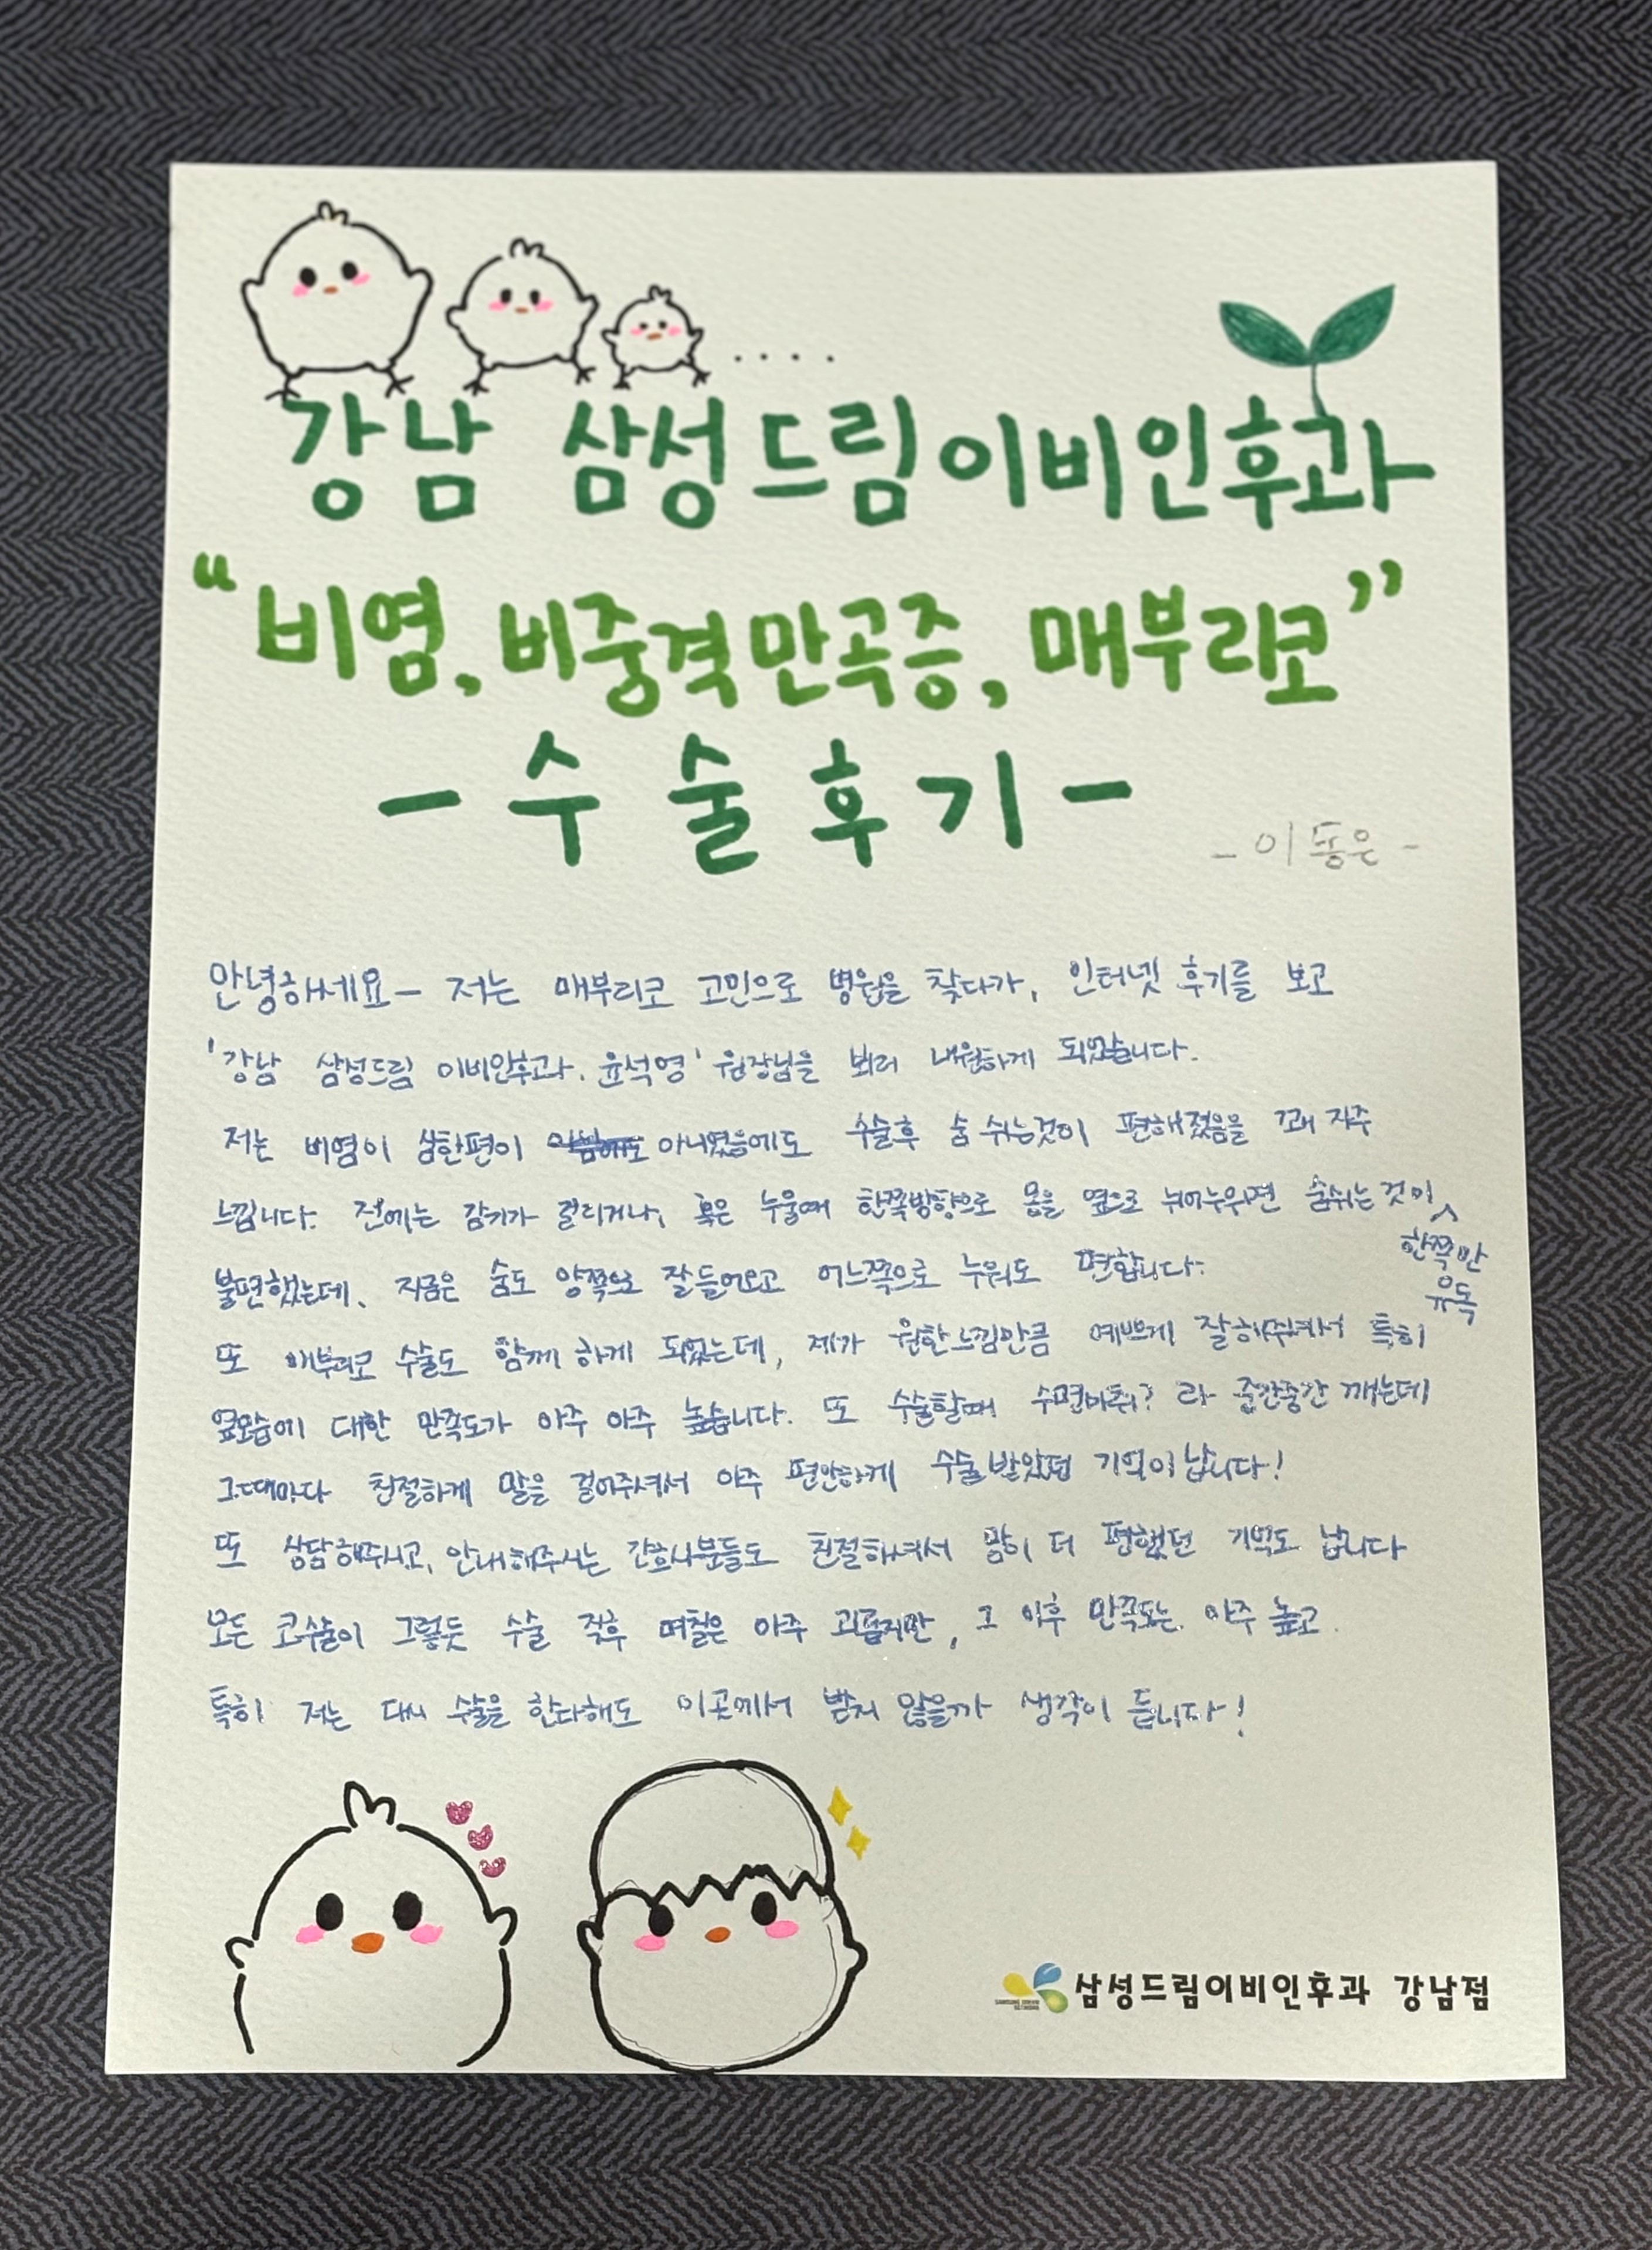 강남 삼성드림이비인후과
“비염, 비중격만곡증, 매부리코”
- 수술후기 -
- 이동은 -
안녕하세요- 저는 매부리코 고민으로 병원을 찾다가, 인터넷 후기를 보고
'강남 삼성드림 이비인후과. 윤석영' 원장님을 뵈러 내원하게 되었습니다.
저는 비염이 심한편이 아니였음에도 수술후 숨 쉬는것이 편해졌음을 꽤 자주
느낍니다. 전에는 감기가 걸리거나, 혹은 누울때 한쪽방향으로 몸을 옆으로 뉘어누위면 숨쉬는 것이
한쪽만
유독
불편했는데, 지금은 숨도 양쪽으로 잘들어오고 어느쪽으로 누워도 편합니다.
또 매부리코 수술도 함께 하게 되었는데, 제가 원한느낌만큼 예쁘게 잘해주셔서 특히
옆모습에 대한 만족도가 아주 아주 높습니다. 또 수술할때 수면마취? 라 중간중간 깨는데
그때마다 친절하게 말을 걸어주셔서 아주 편안하게 수술받았던 기억이납니다!
또 상담해주시고, 안내해주시는 간호사분들도 친절하셔서 맘이 더 편했던 기억도 납니다
모든 코수술이 그렇듯 수술 직후 며칠은 아주 괴롭지만, 그 이후 만족도는 아주 높고.
특히 저는 다시 수술을 한다해도 이곳에서 받지 않을까 생각이 듭니다!
삼성드림이비인후과 강남점